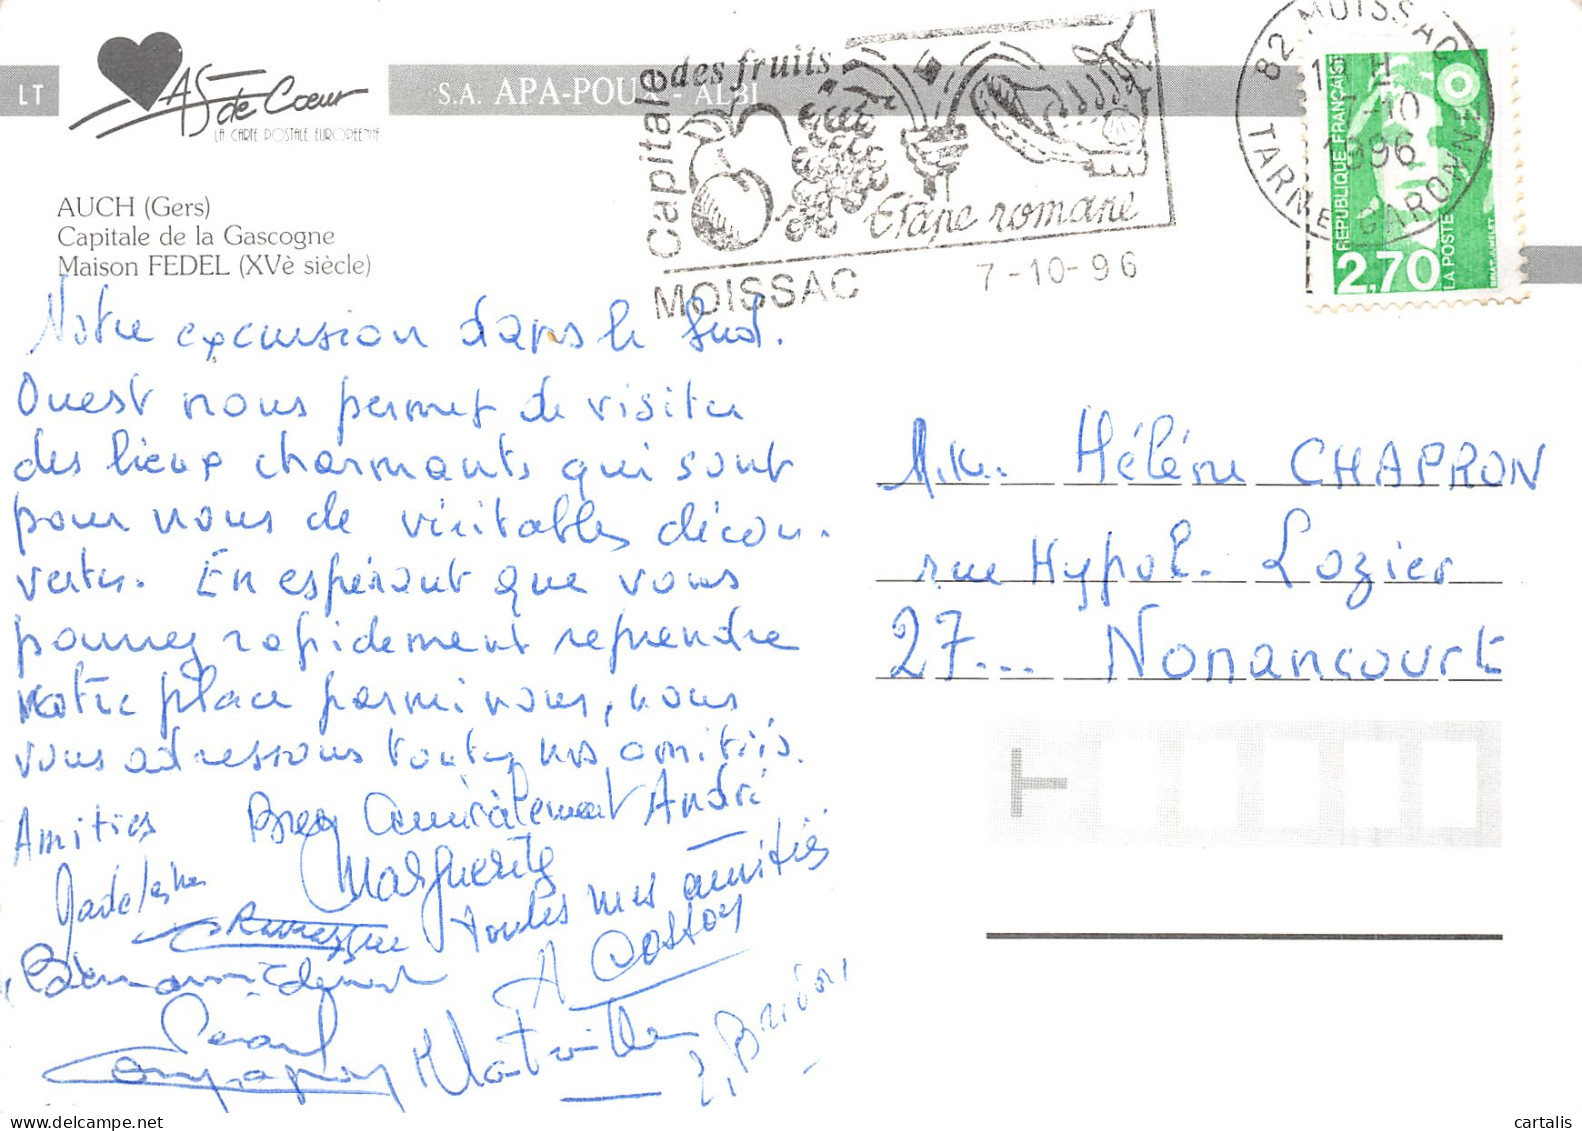 LT
AS de Cœur
LA CARTE POSTALE EUROPÉENNE
S.A. APA-POUX - ALBI
AUCH (Gers)
Capitale de la Gascogne
Maison FEDEL (XVè siècle)
Capitale des fruits
Etape romane
MOISSAC
7-10-96
82 MOISSAC
7-10
1996
TARN ET GARONNE
RÉPUBLIQUE FRANÇAISE
2,70
LA POSTE
Notre excursion dans le Sud.
Ouest nous permet de visiter
des lieux charmants qui sont
pour nous de véritables décou-
vertes. En espérant que vous
pourrez rapidement reprendre
votre place parmi nous, nous
vous adressons toutes nos amitiés.
Amitiés Bien Amicalement André
Marguerite
Toutes mes amitiés
Bien amicalement
Gérard
Mme Hélène CHAPRON
rue Hypol. Lozier
27... Nonancourt
cartalis
www.delcampe.net